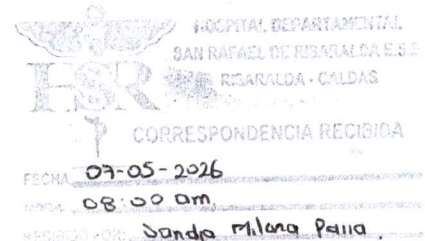 HOSPITAL DEPARTAMENTAL
SAN RAFAEL DE RISARALDA E.S.E
RISARALDA - CALDAS
HSR
CORRESPONDENCIA RECIBIDA
FECHA 07-05-2026
HORA 08:00 am
RECIBIDO POR: Sandra Milena